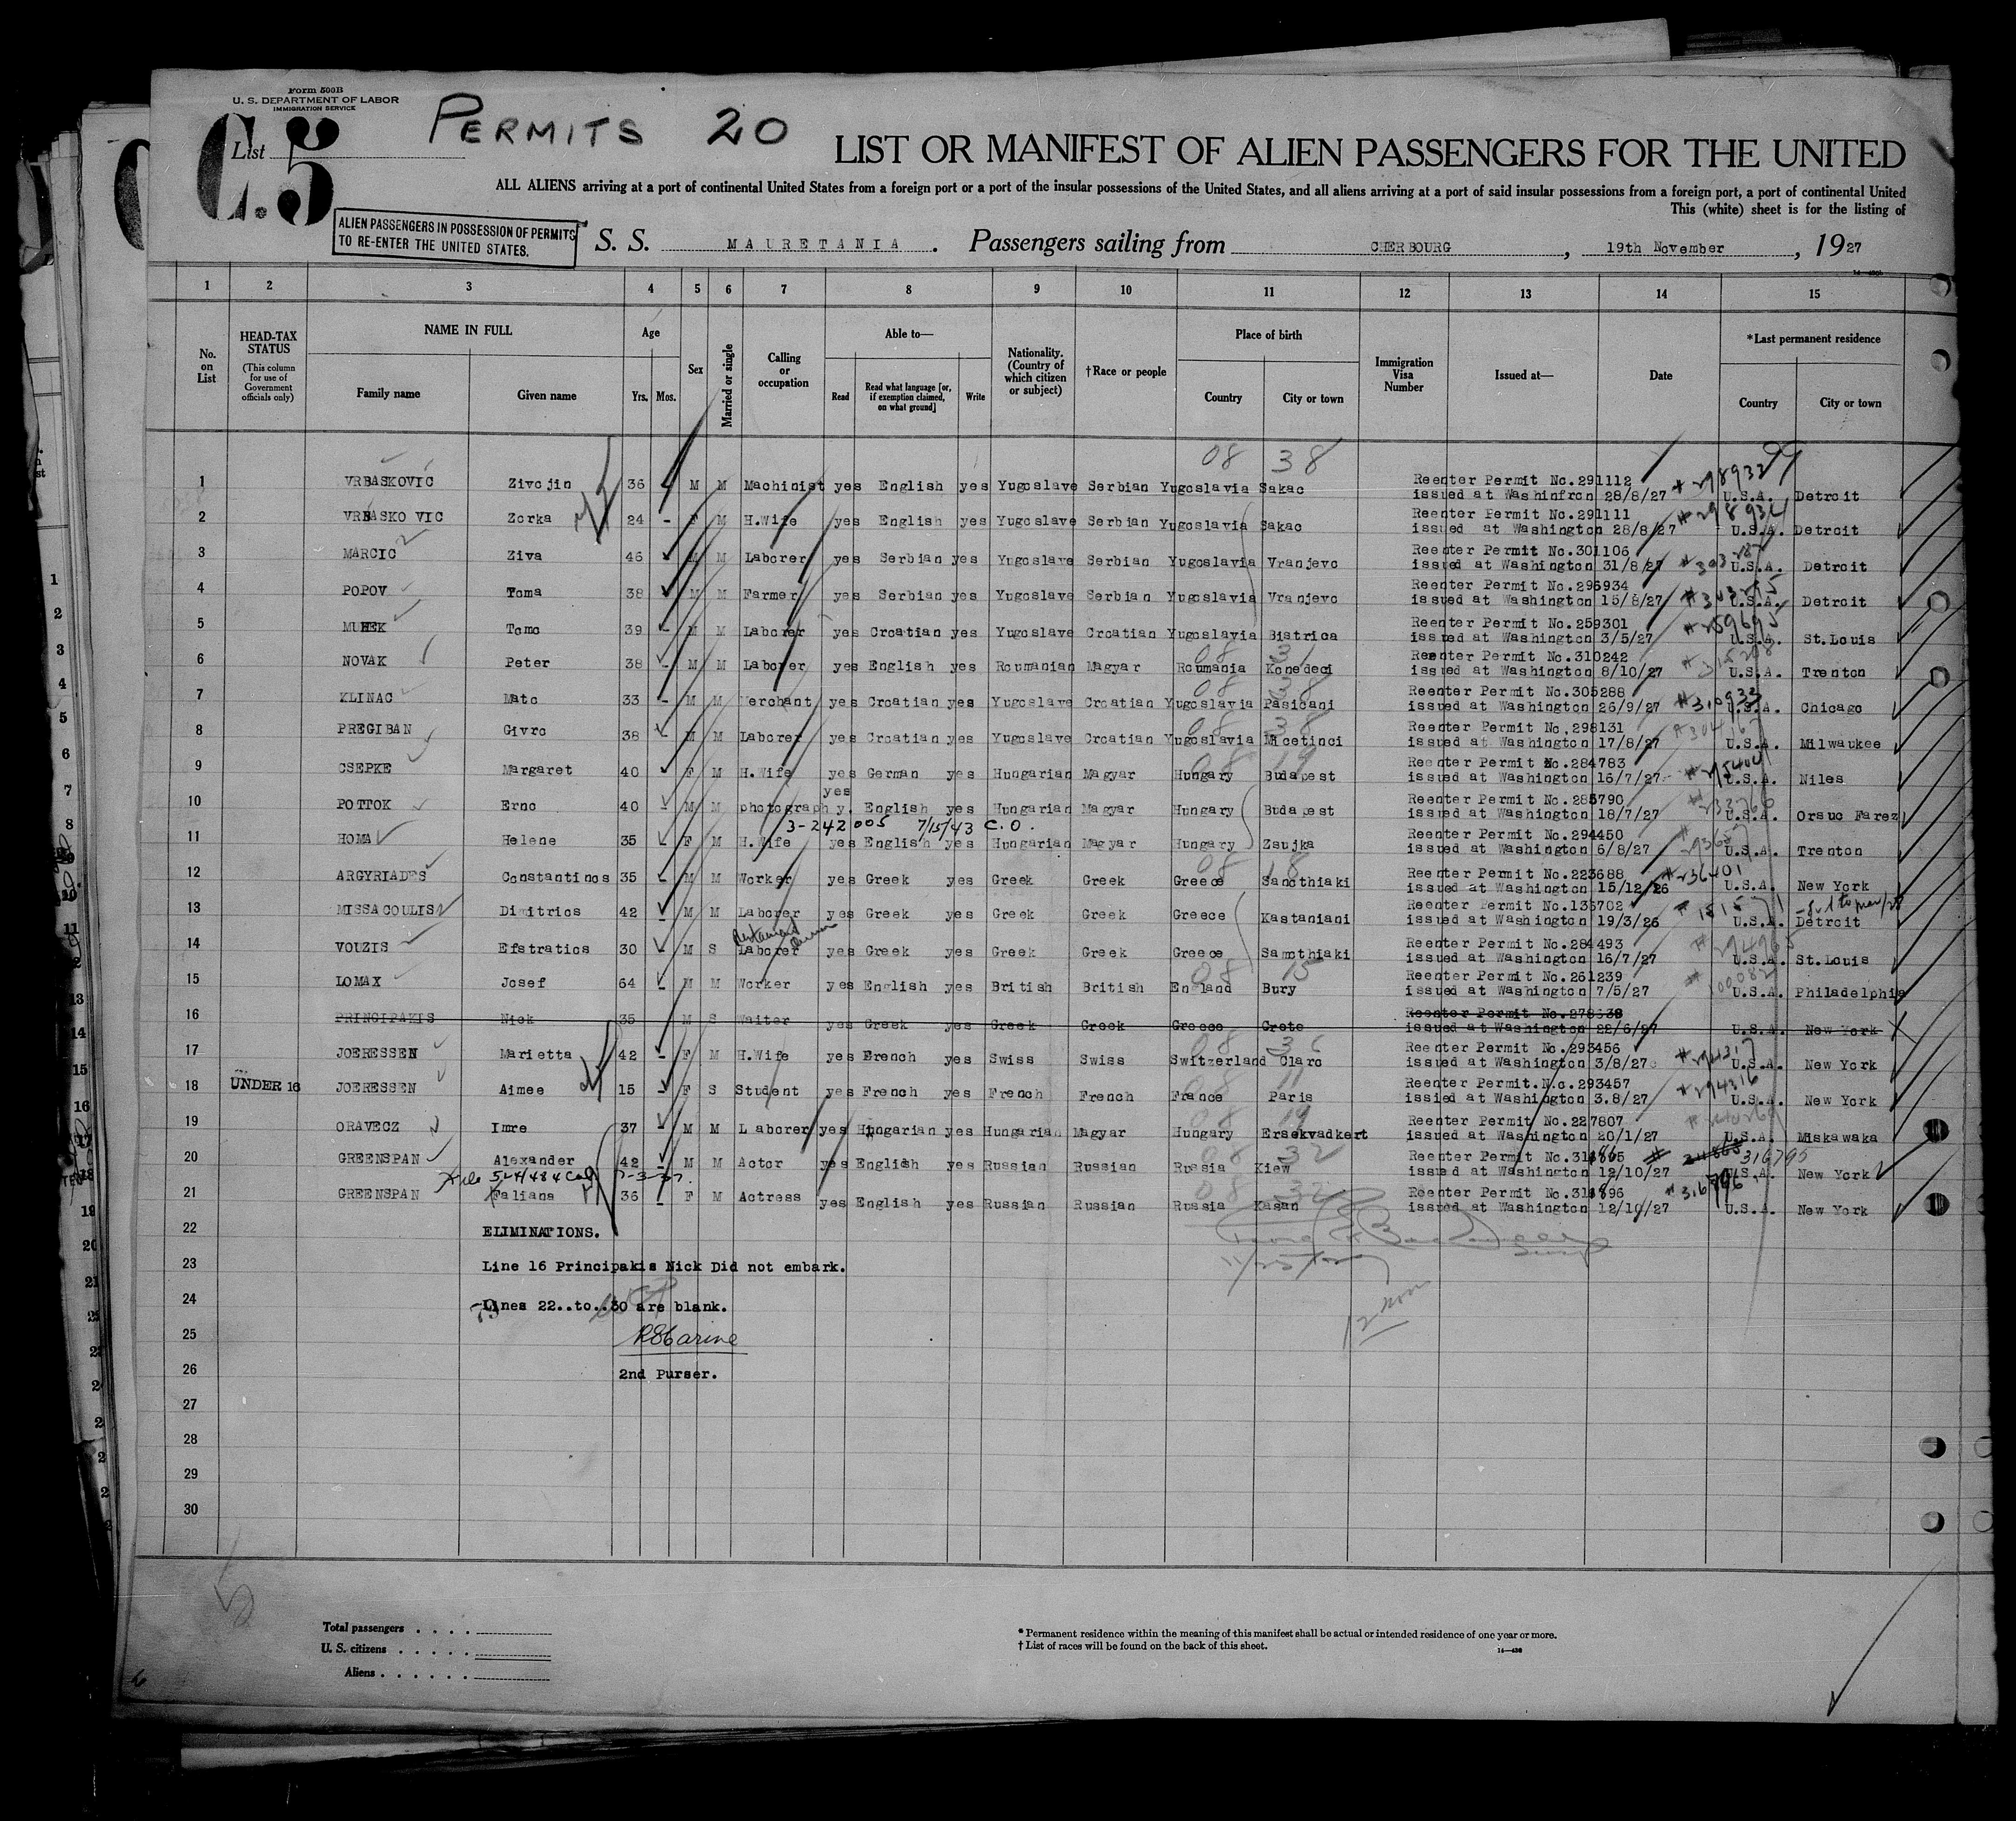 Form 500B
U. S. DEPARTMENT OF LABOR
IMMIGRATION SERVICE
List C.5
PERMITS 20
LIST OR MANIFEST OF ALIEN PASSENGERS FOR THE UNITED
ALL ALIENS arriving at a port of continental United States from a foreign port or a port of the insular possessions of the United States, and all aliens arriving at a port of said insular possessions from a foreign port, a port of continental United
This (white) sheet is for the listing of
ALIEN PASSENGERS IN POSSESSION OF PERMITS
TO RE-ENTER THE UNITED STATES.
S. S. MAURETANIA. Passengers sailing from CHERBOURG, 19th November, 1927
1 2 3 4 5 6 7 8 9 10 11 12 13 14 15
No. on List
HEAD-TAX STATUS (This column for use of Government officials only)
NAME IN FULL
Family name Given name
Age
Yrs. Mos.
Sex
Married or single
Calling or occupation
Able to—
Read Read what language [or, if exemption claimed, on what ground] Write
Nationality. (Country of which citizen or subject)
†Race or people
Place of birth
Country City or town
Immigration Visa Number
Issued at—
Date
*Last permanent residence
Country City or town
08 38
1 VRBASKOVIC Zivojin 36 M M Machinist yes English yes Yugoslave Serbian Yugoslavia Sakac Reenter Permit No.291112 issued at Washinfron 28/8/27 U.S.A. Detroit
2 VRBASKO VIC Zorka 24 - F M H.Wife yes English yes Yugoslave Serbian Yugoslavia Sakac Reenter Permit No.291111 issued at Washington 28/8/27 U.S.A. Detroit
3 MARCIC Ziva 46 M M Laborer yes Serbian yes Yugoslave Serbian Yugoslavia Vranjevo Reenter Permit No.301106 issued at Washington 31/8/27 U.S.A. Detroit
4 POPOV Toma 38 M M Farmer yes Serbian yes Yugoslave Serbian Yugoslavia Vranjevo Reenter Permit No.296934 issued at Washington 15/8/27 U.S.A. Detroit
5 Tomo 39 - M M Laborer yes Croatian yes Yugoslave Croatian Yugoslavia Bistrica Reenter Permit No.259301 issued at Washington 3/5/27 U.S.A. St.Louis
6 NOVAK Peter 38 - M M Laborer yes English yes Roumanian Magyar Roumania Konedeci Reenter Permit No.310242 issued at Washington 8/10/27 U.S.A. Trenton
7 KLINAC Mato 33 - M M Merchant yes Croatian yes Yugoslave Croatian Yugoslavia Pasibani Reenter Permit No.305288 issued at Washington 26/9/27 U.S.A. Chicago
8 PREGIBAN Givro 38 - M M Laborer yes Croatian yes Yugoslave Croatian Yugoslavia Micetinci Reenter Permit No.298131 issued at Washington 17/8/27 U.S.A. Milwaukee
9 CSEPKE Margaret 40 F M H.Wife yes German yes Hungarian Magyar Hungary Budapest Reenter Permit No.284783 issued at Washington 16/7/27 U.S.A. Niles
10 POTTOK Erno 40 - M M photography. yes English yes Hungarian Magyar Hungary Budapest Reenter Permit No.285790 issued at Washington 18/7/27 U.S.A. Orsuo Farez
3-242005 7/15/43 C.O.
11 HOMA Helene 35 F M H.Wife yes English yes Hungarian Magyar Hungary Zsujka Reenter Permit No.294450 issued at Washington 6/8/27 U.S.A. Trenton
12 ARGYRIADES Constantinos 35 - M M Worker yes Greek yes Greek Greek Greece Samothiaki Reenter Permit No.223688 issued at Washington 15/12/26 U.S.A. New York
13 MISSACOULIS Dimitrios 42 - M M Laborer yes Greek yes Greek Greek Greece Kastaniani Reenter Permit No.135702 issued at Washington 19/3/26 U.S.A. Detroit
14 VOUZIS Efstratios 30 - M S Laborer yes Greek yes Greek Greek Greece Samothiaki Reenter Permit No.284493 issued at Washington 16/7/27 U.S.A. St.Louis
15 LOMAX Josef 64 - M M Worker yes English yes British British England Bury Reenter Permit No.261239 issued at Washington 7/5/27 U.S.A. Philadelphia
16 PRINCIPAKIS Nick 35 M S Waiter yes Greek yes Greek Greek Greece Crete Reenter Permit No.278638 issued at Washington 22/6/27 U.S.A. New York
17 JOERESSEN Marietta 42 - F M H.Wife yes French yes Swiss Swiss Switzerland Claro Reenter Permit No.293456 issued at Washington 3/8/27 U.S.A. New York
18 UNDER 16 JOERESSEN Aimee 15 F S Student yes French yes French French France Paris Reenter Permit.No.293457 issied at Washington 3.8/27 #294316 U.S.A. New York
19 ORAVECZ Imre 37 M M Laborer yes Hungarian yes Hungarian Magyar Hungary Ersekvadkert Reenter Permit No.227807 issued at Washington 20/1/27 U.S.A. Miskawaka
20 GREENSPAN Alexander 42 - M M Actor yes English yes Russian Russian Russia Kiew Reenter Permit issued at Washington 12/10/27 316795 U.S.A. New York
21 GREENSPAN Faliana 36 - F M Actress yes English yes Russian Russian Russia Kasan Reenter Permit issued at Washington 12/10/27 #316796 U.S.A. New York
22 ELIMINATIONS.
23 Line 16 Principakis Nick Did not embark.
24 Lines 22..to..30 are blank.
25
26 2nd Purser.
27
28
29
30
Total passengers
U. S. citizens
Aliens
* Permanent residence within the meaning of this manifest shall be actual or intended residence of one year or more.
† List of races will be found on the back of this sheet.